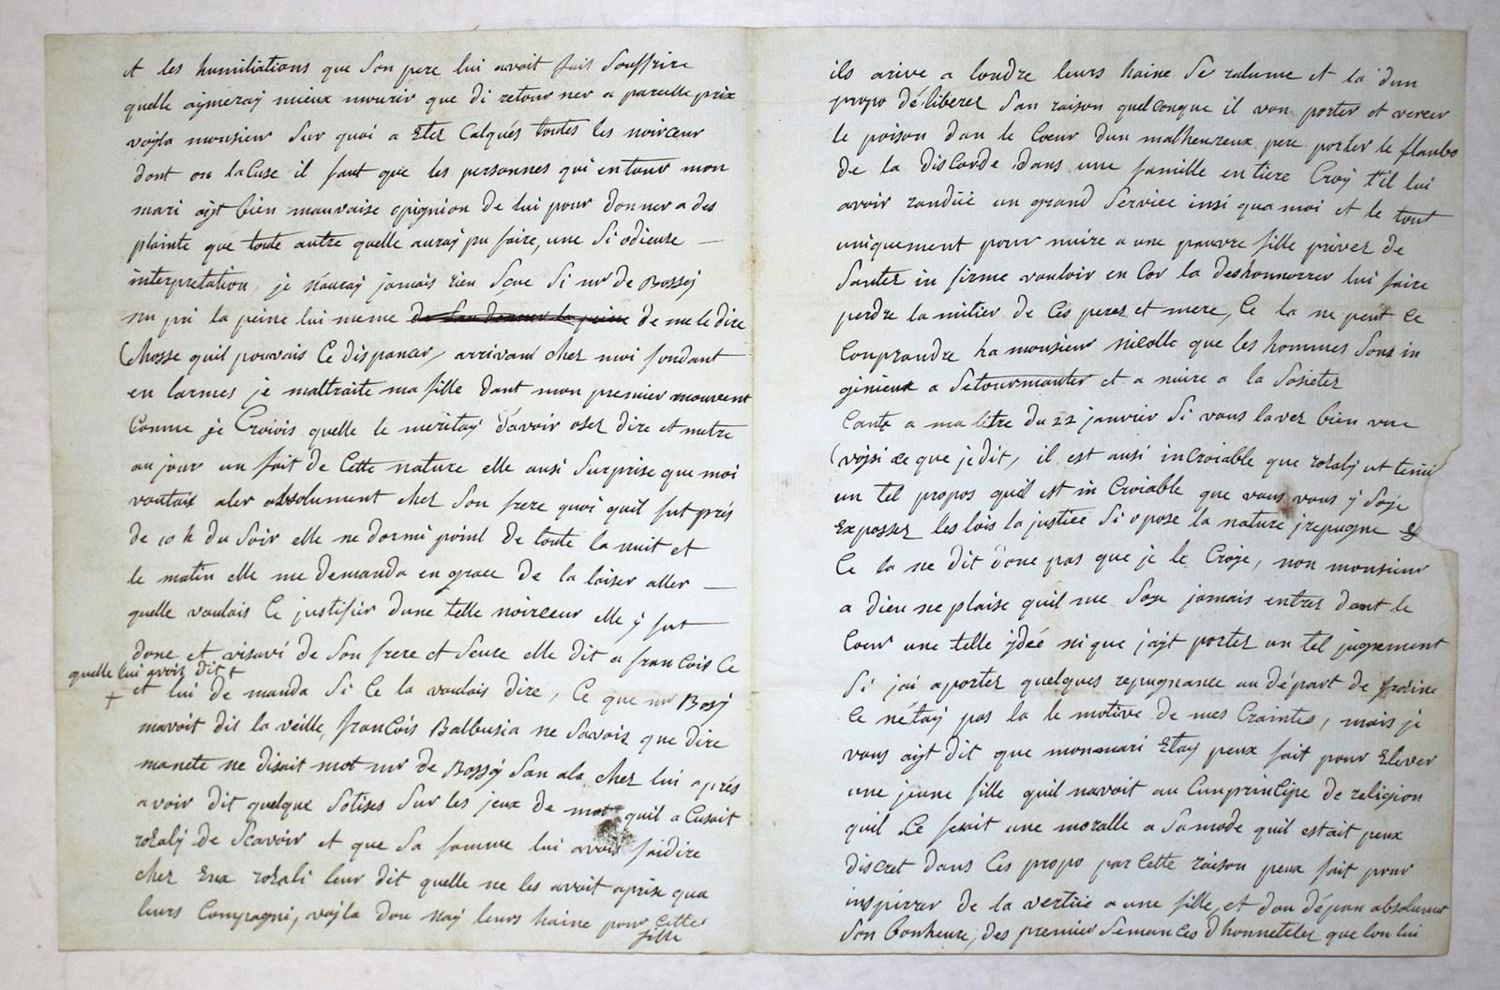 et les humiliations que son pere lui avoit fait souffrire
quelle aymeray mieux mourir que di retourner a pareille prix
voyla monsieur sur quoi a eter calqués toutes les noirceur
dont on lacuse il faut que les personnes qui entour mon
mari ayt bien mauvaise opignion de lui pour donner a des
plainte que toute autre quelle auray pu faire, une si odieuse
interpretation, je nauray jamais rien sçue si mr de Bossy
nu pri la peine lui meme de me le dire
chosse quil pouvais ce dispancer, arrivant chez moi fondant
en larmes je maltraite ma fille dont mon premier mouvent
comme je croiois quelle le meritay davoir oser dire et metre
au jour un fait de cette nature elle ausi surprise que moi
voulais aler absolument chez son frere quoi quil fut près
de 10 h du soir elle ne dormi point de toute la nuit et
le matin elle me demanda en grace de la laiser aller
quelle voulais ce justifier dune telle noirceur elle y fut
donc et visavi de son frere et seure elle dit a francois ce
quelle lui avois dit +
+ et lui demanda si ce la voulais dire, ce que mr Bosy
mavoit dit la veille, francois Balbusia ne savois que dire
manete ne disait mot mr de Bossy san ala chez lui après
avoir dit quelque sotises sur les jeux de mot quil acusait
rosaly de scavoir et que sa famme lui avois faidire
chez rosali leur dit quelle ne les avoit aprise qua
leurs compagni, voyla dou nay leurs haine pour cette
fille
ils arive a londre leurs haine se ralume et la dun
propo déliberer san raison quelconque il von porter et verser
le poison dan le coeur dun malheureux pere porter le flanbo
de la discorde dans une famille entiere croy t'il lui
avoir randüe un grand service insi qua moi et le tout
uniquement pour nuire a une pauvre fille priver de
santer infirme vouloir en cor la deshonnorrer lui faire
perdre lamitier de ces peres et mere, ce la ne peut ce
conprandre ha monsieur nicolle que les hommes sont in
génieux a se tourmanter et a nuire a la sosieter
cante a ma letre du 22 janvier si vous lavez bien vue
(voysi ce que je dit, il est ausi incroiable que rosaly ut tenü
un tel propos quil est in croiable que vous vous y soye
exposser les lois la justice si opose la nature j repugne
ce la ne dit donc pas que je le croye, non monsieur
a dieu ne plaise quil me soye jamais entrer dant le
coeur une telle ydéé ni que jayt porter un tel jugement
si jai aporter quelques repugnance au départ de
ce nétay pas la le motive de mes craintes, mais je
vous ayt dit que mon mari etay peux fait pour elever
une jeune fille quil navoit aucun principe de religion
quil ce fesait une moralle a sa mode quil estait peux
discret dans ces propo par cette raison peux fait pour
inspirrer de la vertüe a une fille, et dou dépan absolumet
son bonheure, des premier semances dhonneteter que lon lui